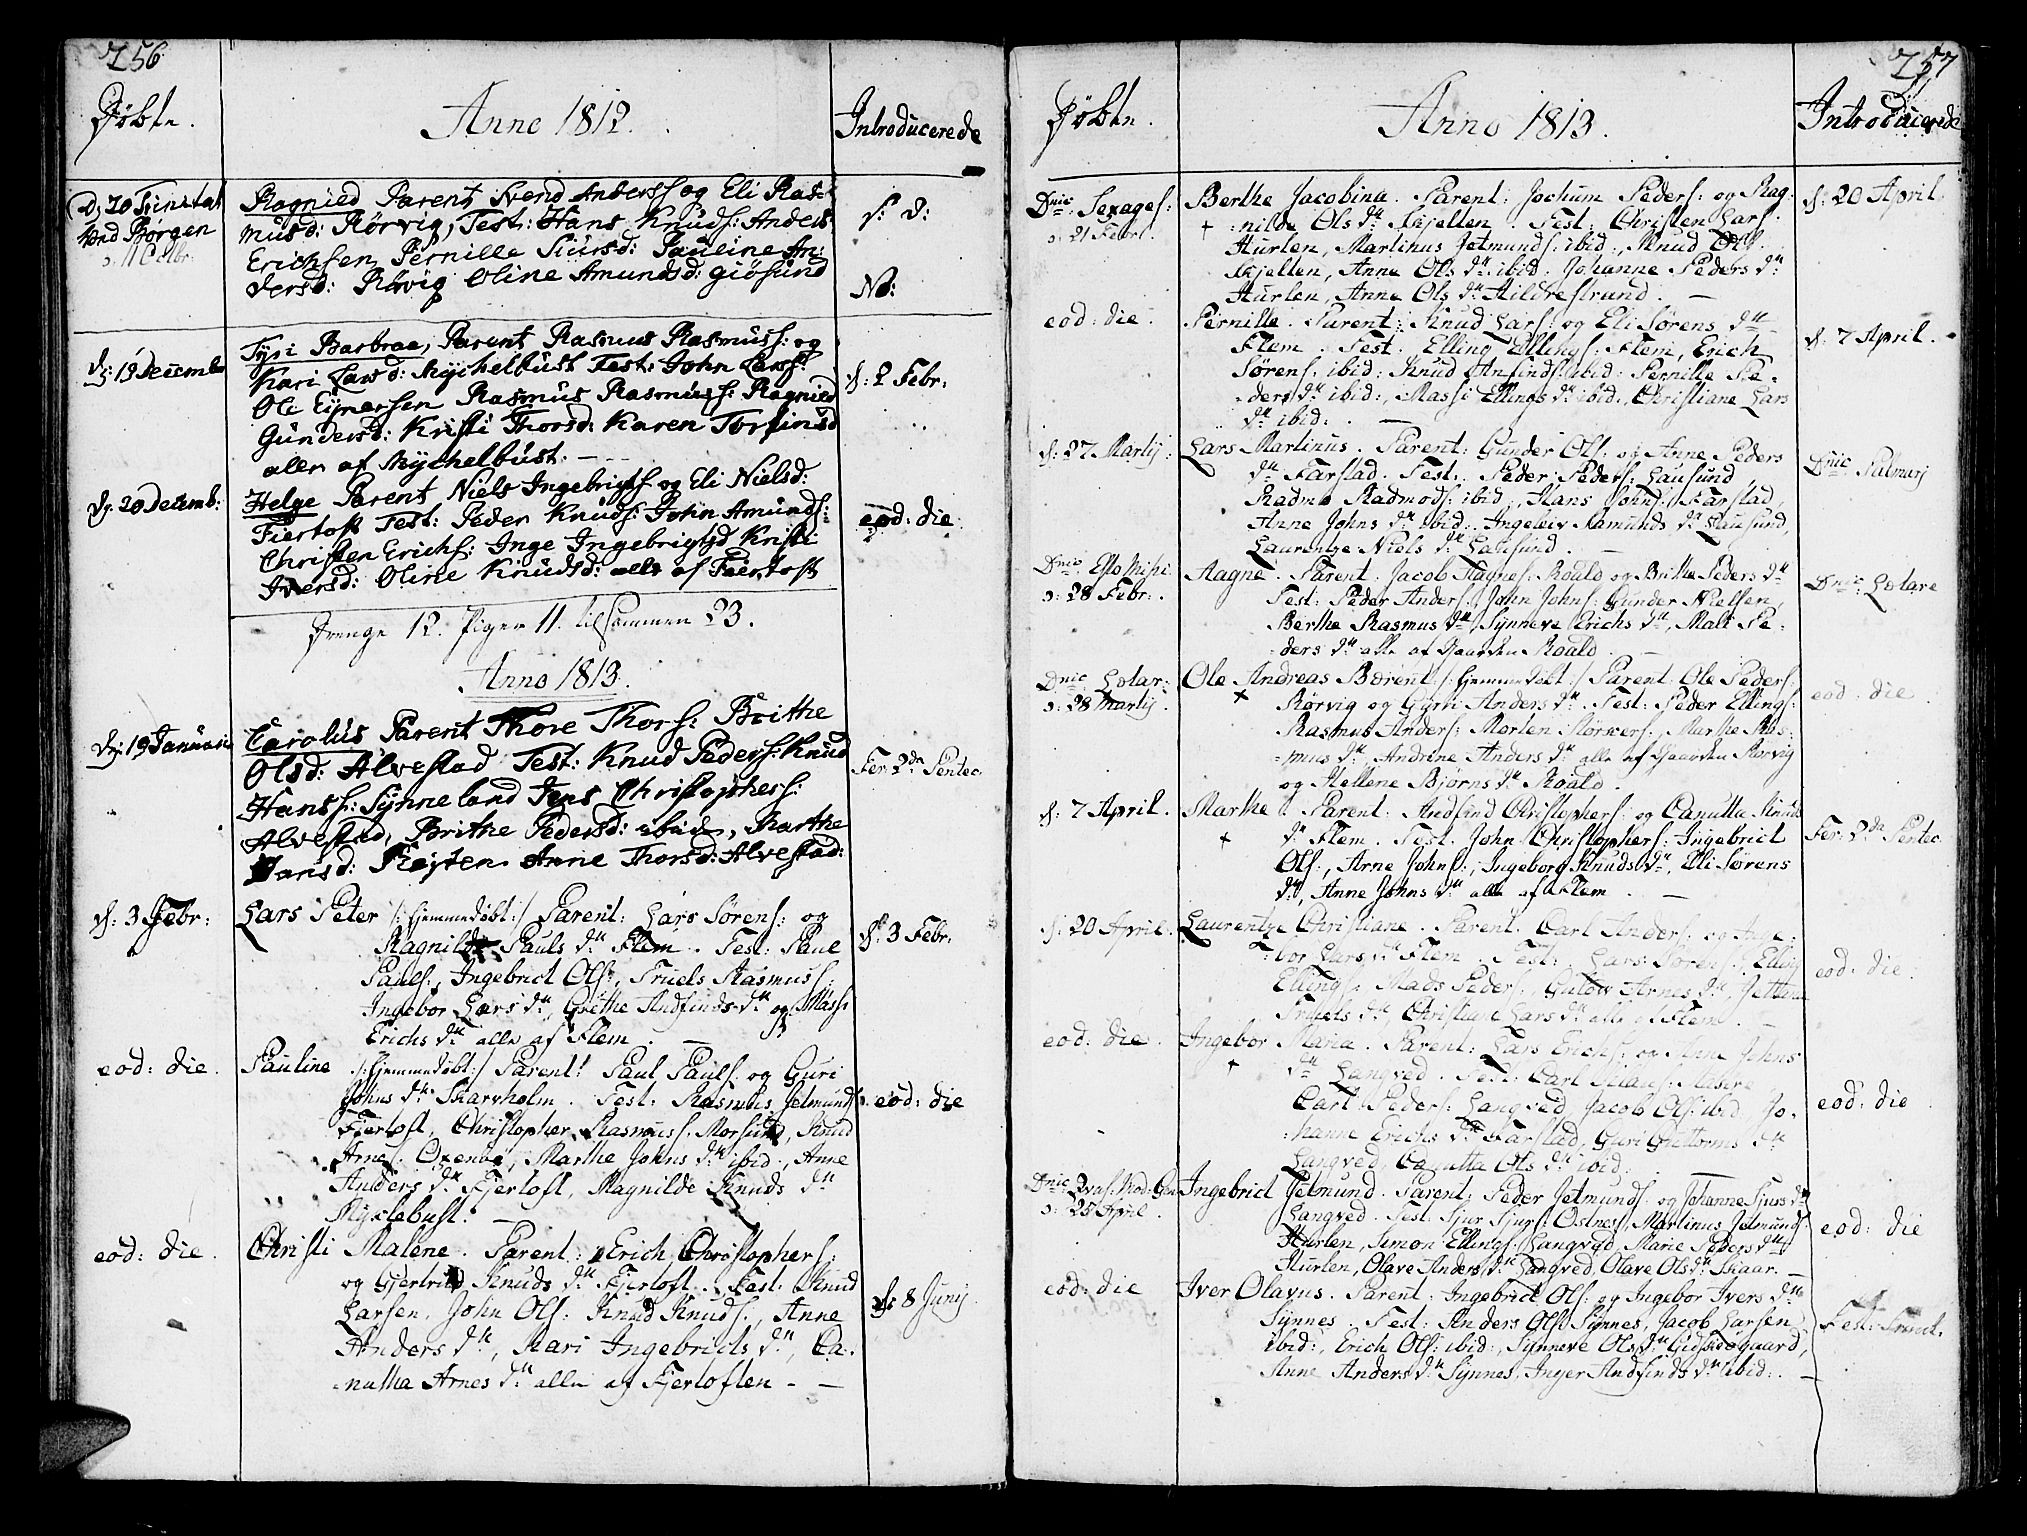 256.
Døbte.
Anno 1812.
Introducerede
D. 20 Trinitat
Ragnied Parent Svend Andersf og Eli Ras-
musd: Rørvig, Test: Hans Knudf: Anders
Erichsen Pernille Siursd: Pauline An:
dersd: Røvig Oline Amundsd: giøsund
No:
D: 19 Decemb
Tyri Barbrae, Parent Rasmus Rasmusf: og
Kari Larsd: Mychelbust Test: John Larsf:
Ole Ejnersen Rasmus Rasmusf: Ragnied
Gundersd: Kristi Thorsd: Karen Torfinsd
alle af Mychelbust. —
d: 2 Febr:
D: 20 Decemb:
Helge Parent Niels Ingebrigtf og Eli Nielsd:
Fiertoft Test: Peder Knudf: John Amundf:
Christen Erichf: Inge Ingebrigtsd Kristi
Iversd: Oline Knudsd: alle af Fiertoft
eod: die
Drenge 12. Piger 11. tilsammen 23.
Anno 1813.
D: 19 Januarii
Carolus Parent Thore Thorsf: Brithe
Olsd: Alvestad Test: Knud Pedersf: Knud
Hansf: Synneland Jens Christophersf:
Alvestad, Brithe Pedersd: ibid, Marthe
Hansd: Røsten Anne Thorsd: Alvestad:
Fer: 2da Pentec.
d: 3 Febr:
Lars Peter /: hjemmedøbt :/ Parent: Lars Sørenf: og
Ragnilde Pauls dtr Flem. Test: Paul
Paulf:, Ingebrict Olf:, Truels Rasmusf:
Ingebor Lars dtr, Grethe Andfinds dtr og Massi
Erichs dtr alle af Flem. —
d: 3 Febr:
eod: die.
Pauline /: hjemmedøbt :/ Parent: Paul Paulf. og Guri
Johns dtr Skarvholm. Test: Rasmus Jetmundf.
Fjertoft, Christopher Rasmusf: Morsund, Knud
Arnef: Oxenøe, Marthe Johns dtr ibid:, Anne
Anders dtr Fjertoft, Magnilde Knuds dtr
Myklebust. —
eod: die
eod: die.
Christi Malene. Parent: Erich Christopherf:
og Gjertrud Knuds dtr Fjertoft. Test: Knud
Larsen, John Olf: Knud Knudf., Anne
Anders dtr, Kari Ingebricts dtr, Ca-
nutha Arnes dtr alle af Fjertoften - —
d: 8 Junij.
257
Døbte.
Anno 1813.
Introducerede
Dnic: Sexagef:
d: 21 Febr.
Berthe Jacobina. Parent: Jochum Pederf: og Rag-
nilde Ols dtr Skjelten. Test: Christen Larf:
Hurlen, Martinus Jetmundf: ibid:, Knud Olf.
Skjelten, Anne Ols dtr ibid: Johanne Peders dtr
Hurlen, Anne Ols dtr Hildrestrand. —
d: 20 April.
eod: die.
Pernille. Parent: Knud Larf: og Eli Sørens dtr
Flem. Test. Elling Ellingf: Flem, Erich
Sørenf. ibid: Knud Anfindf: ibid: Pernille Pe-
ders dtr ibid:, Massi Ellings dtr ibid:, Christiane Lars
dtr ibid:. —
d: 7 April.
d: 27 Martij:
Lars Martinus. Parent: Gunder Olf: og Anne Peders
dtr Farstad. Test. Peder Pederf: Lausund
Radmo Radmodf: ibid, Hans Johnf: Farstad,
Anne Johns dtr ibid: Ingeleiv Aamunds dtr Lausund,
Laurentze Niels dtr Lausund. —
Dnic Palmarj
Dnic Esto Mihi
d: 28 Febr:.
Aagne. Parent: Jacob Aagnef: Roald og Brithe Peders dtr
Test: Peder Anderf:, John Johnf: Gunder Nielsen,
Berthe Rasmus dtr, Synneve Erichs dtr, Mali Pe-
ders dtr alle af Gaarden Roald. —
Dnic: Lætare
Dnic Lætar:
d: 28 Martij.
Ole Andreas Børent /: hjemmedøbt :/ Parent: Ole Pederf:
Rørvig og Gyrti Anders dtr. Test: Peder Ellingf:
Rasmus Anderf: Morten Størkerf:, Marthe Ras-
mus dtr, Andrine Anders dtr alle af Gaarden Rørvig
og Hellene Bjørns dtr Roald.
eod: die
d: 7 April.
Marthe. Parent: Andfind Christopherf: og Canutta Knuds
dtr Flem. Test. John Christopherf: Ingebrict
Olf:, Arne Johnf:, Ingeborg Knuds dtr, Eli Sørens
dtr, Anne Johns dtr alle af Flem. —
Fer: 2da Pentec.
d: 20 April.
Laurentze Christiane. Parent. Carl Anderf: og Inge-
bor Lars dtr Flem. Test: Lars Sørenf:, Elling
Ellingf: Mads Pederf:, Gulow Arnes dtr, Jettine
Truels dtr, Christiane Lars dtr alle af Flem. —
eod: die.
eod: die.
Ingebor Maria. Parent: Lars Erichf: og Anne Johns
dtr Langved. Test: Carl
Carl Pederf: Langved, Jacob Olf: ibid, Jo-
hanne Erichs dtr Farstad, Guri Guttorms dtr
Langved, Canutta Ols dtr ibid. —
eod: die
Dnic: Qvas: Mod: Gen
d: 25 April.
Ingebrict Jetmund. Parent: Peder Jetmundf: og Johanne Sjurs dtr
Langved. Test: Sjur Sjurf: Østnes, Martinus Jetmundf.
Hurlen, Simon Ellingf: Langved, Marie Peders dtr
Hurlen, Olave Anders dtr Langved, Olave Ols dtr Skaar. —
eod: die
eod: die
Iver Olavus. Parent: Ingebrict Olf: og Ingebor Ivers dtr
Synnes. Test: Anders Olf. Synnes, Jacob Larsen
ibid:, Erich Olf: ibid:, Synneve Ols dtr Gidskeøgaard,
Anne Anders dtr Synnes, Inger Andfinds dtr ibid:. —
Fest: Trinit.